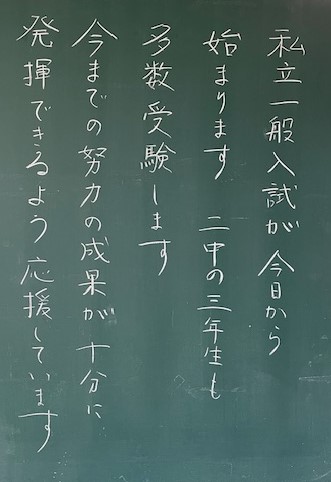 私立一般入試が 今日から
始まります 二中の三年生も
多数受験します
今までの努力の成果が 十分に
発揮できるよう 応援しています